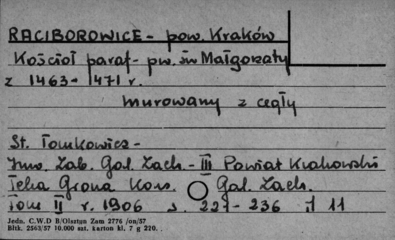 RACIBOROWICE - pow. Kraków
Kościół paraf- pw. św Małgorzaty
z 1463-1471 r.
murowany z cegły
St. Tomkowicz -
Inw. Zab. Gal. Zach. - III Powiat Krakowski
Teka Grona Kons. Gal. Zach.
Tom II r. 1906 s. 227-236 il 11
Jedn. C.W.D B/Olsztyn Zam 2776 /on/57
Bltk. 2563/57 10.000 szt. karton kl. 7 g 220.